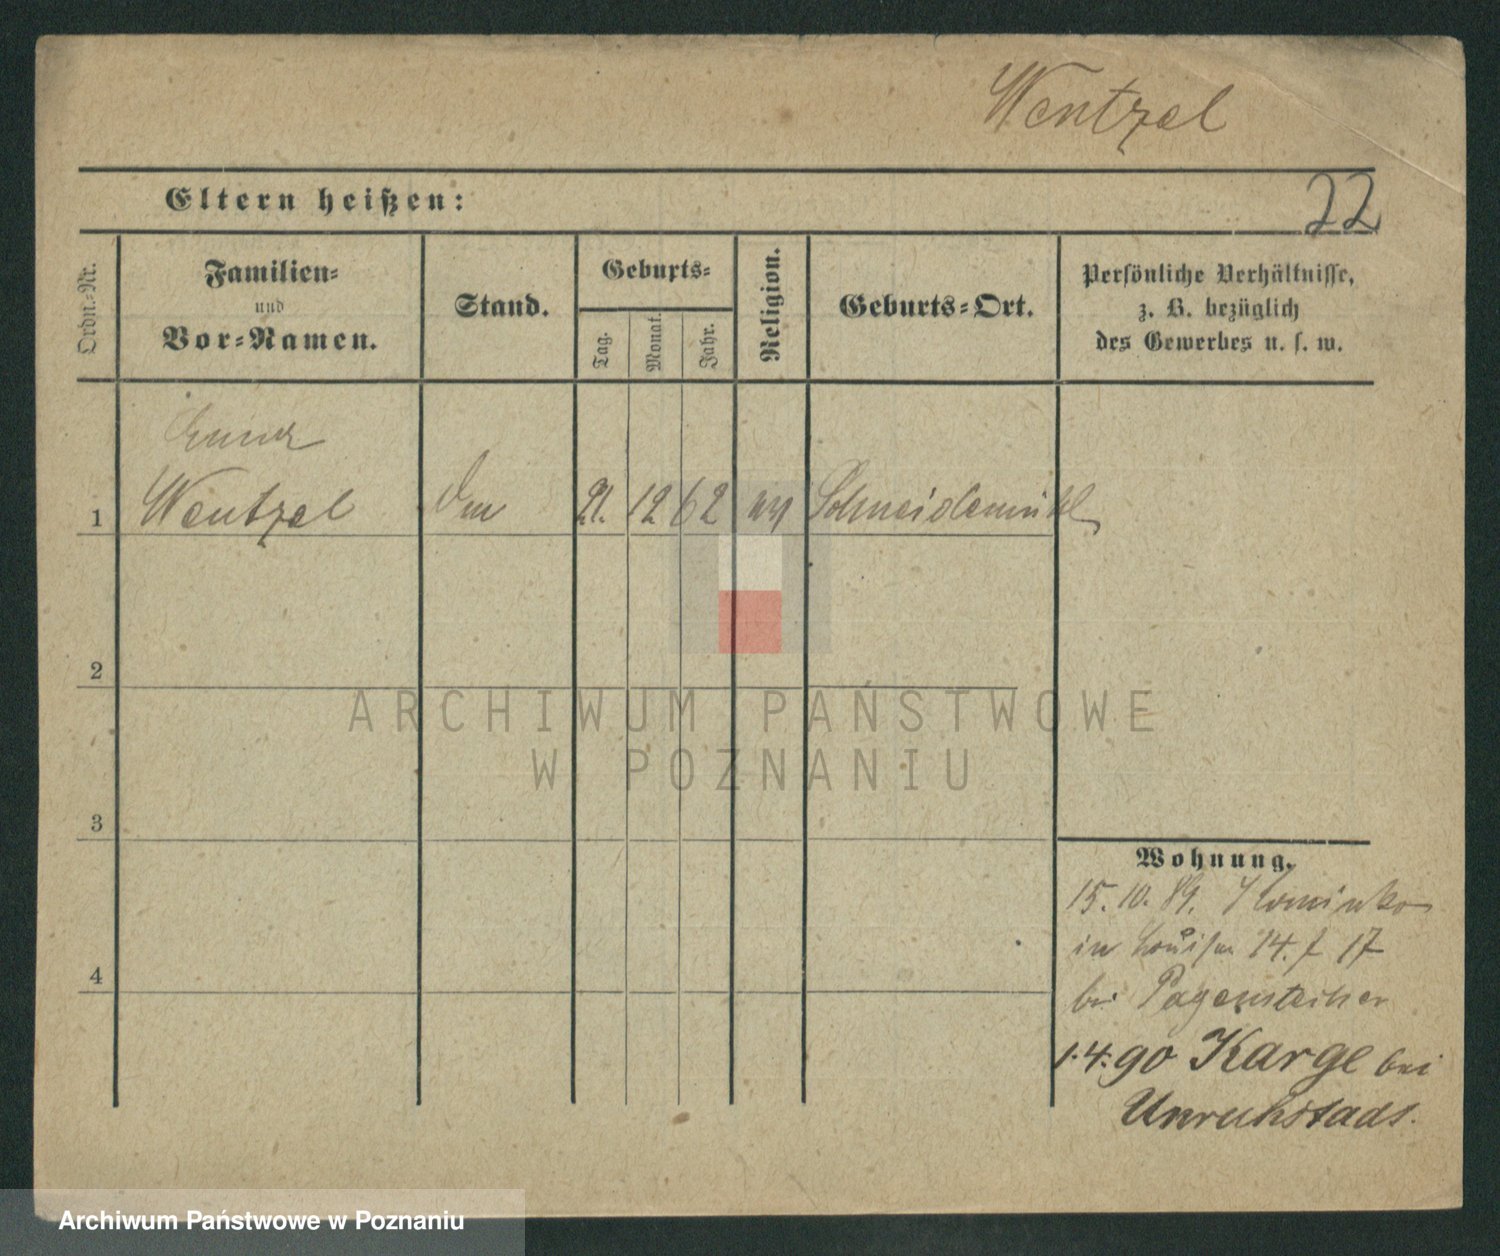 Wentzel
Eltern heißen:
22
Ordn.=Nr.
Familien=
und
Vor=Namen.
Stand.
Geburts=
Tag.
Monat.
Jahr.
Religion.
Geburts=Ort.
Persönliche Verhältnisse,
z. B. bezüglich
des Gewerbes u. s. w.
1
Wentzel
21. 12 62
Schneidemühl
2
3
4
ARCHIWUM PAŃSTWOWE
W POZNANIU
Wohnung.
15. 10. 89.
in 14. 17
bei Pagenstecher
1.4.90 Karge bei
Unruhstadt.
Archiwum Państwowe w Poznaniu